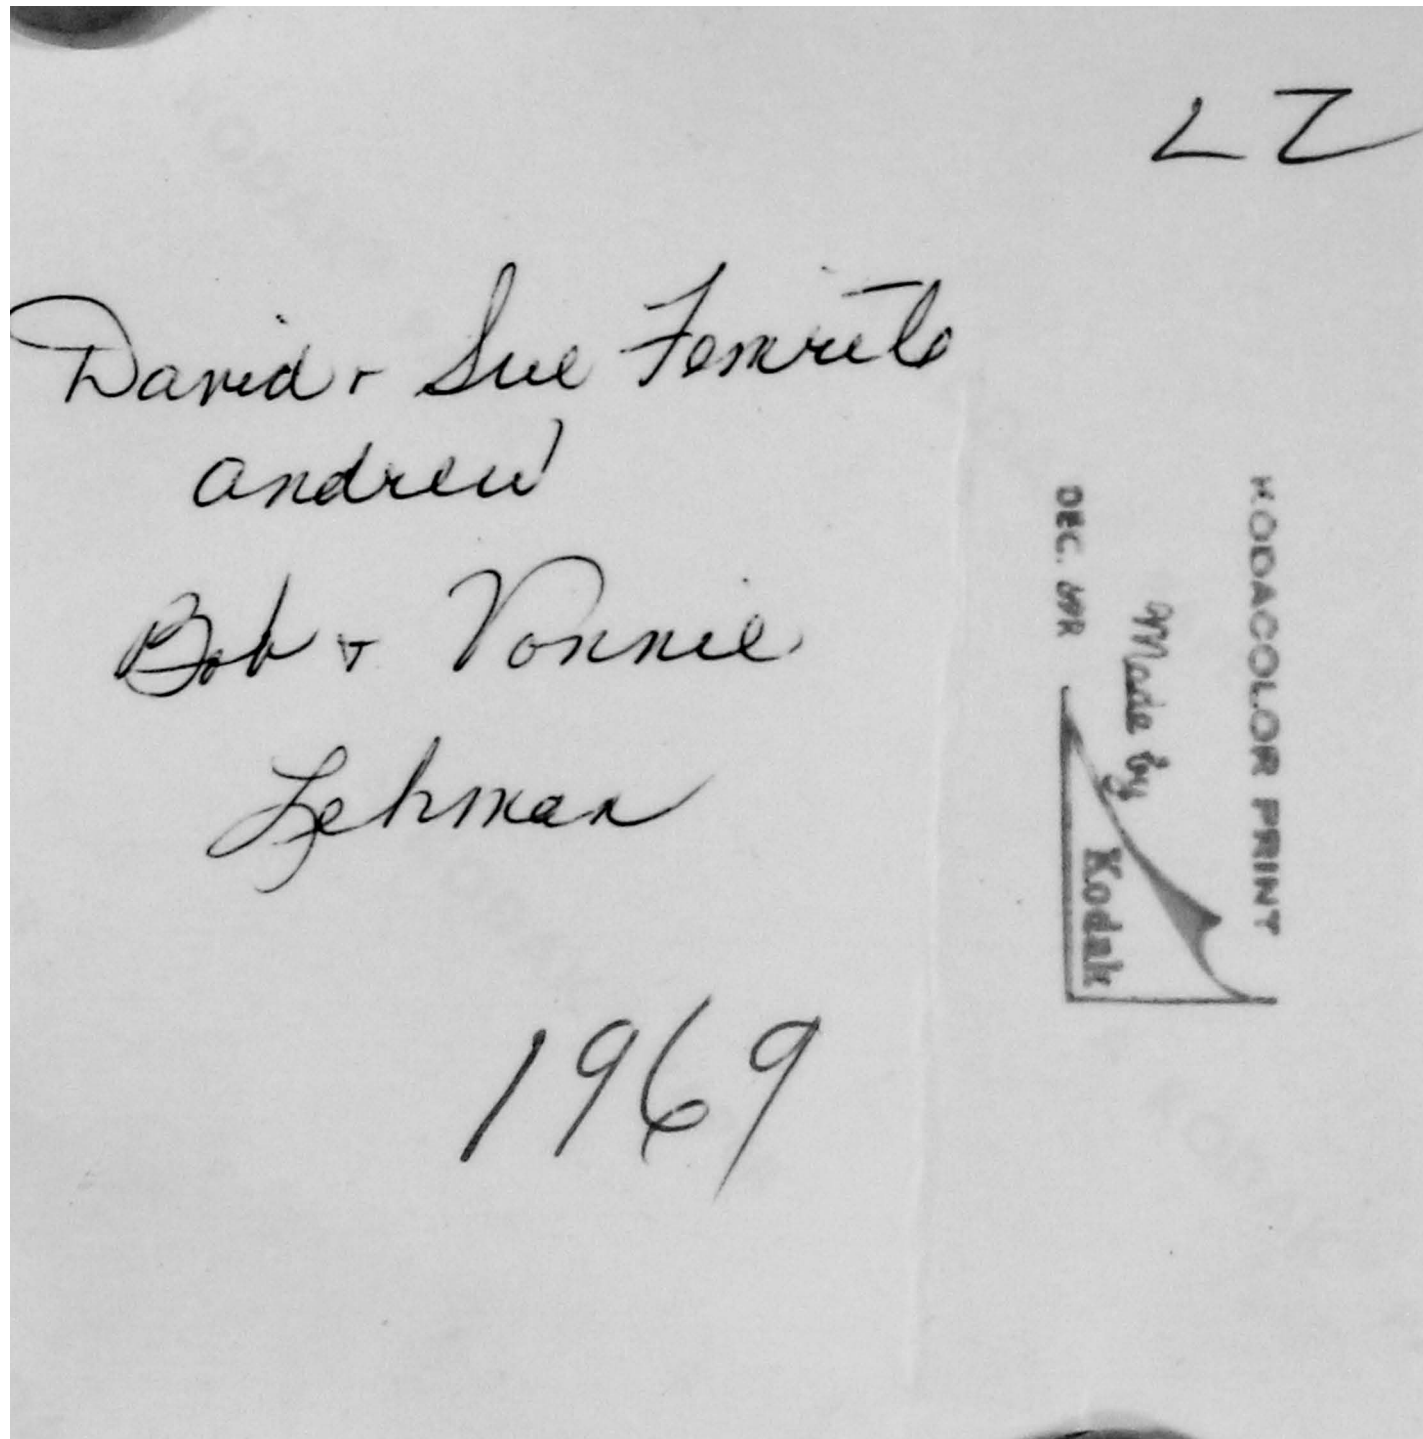 LZ
David + Sue Femrite
Andrew
Bob + Vonnie
Lehman
1969
KODACOLOR PRINT
Made by
Kodak
DEC. 69R